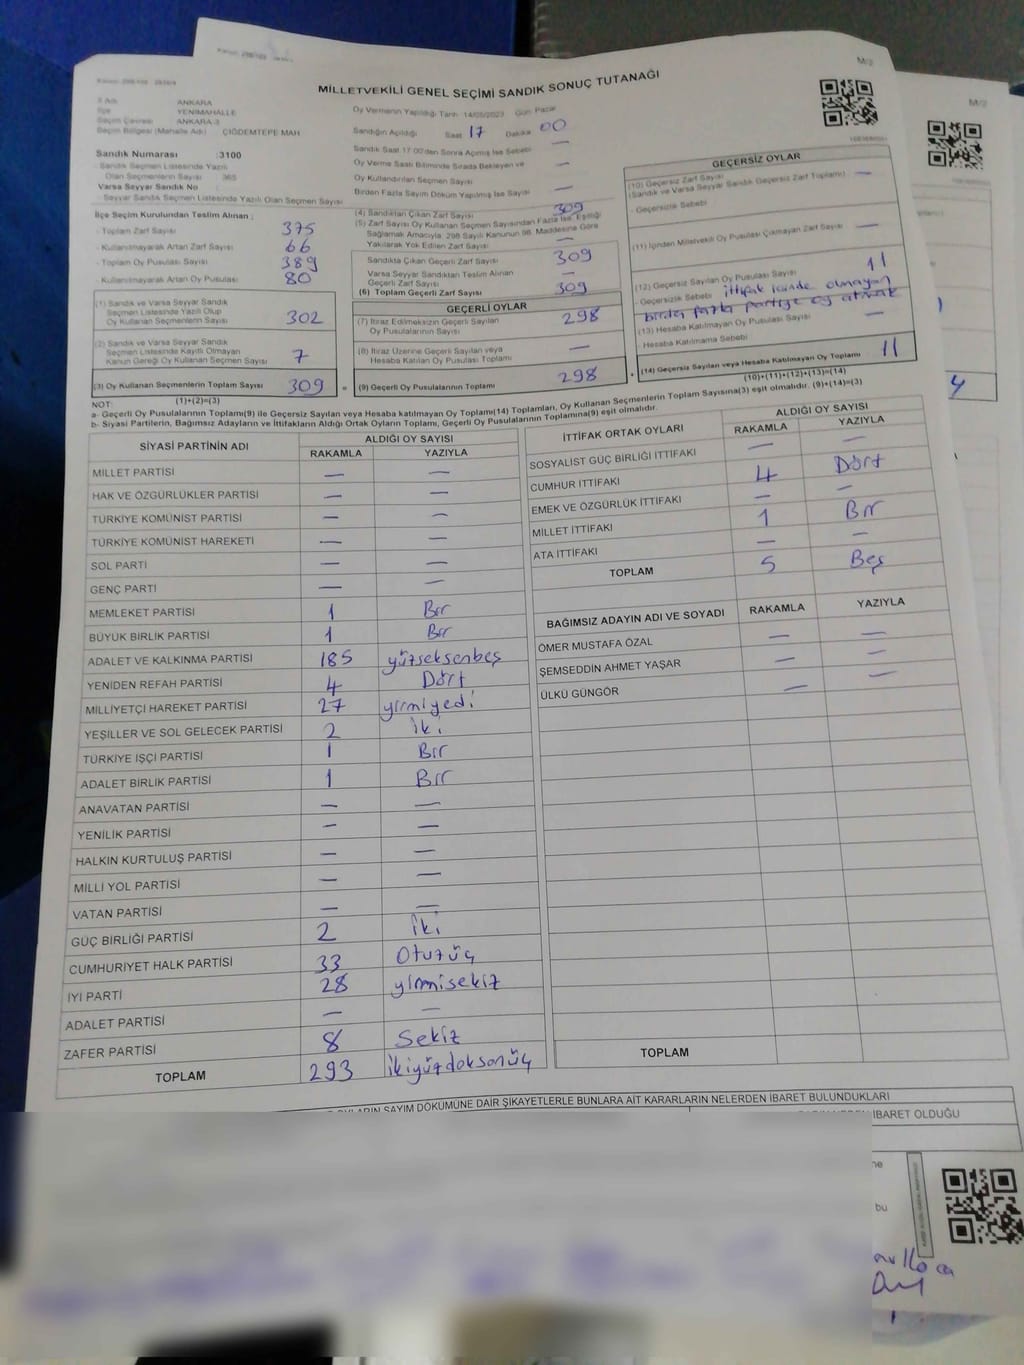 MİLLETVEKİLİ GENEL SEÇİMİ SANDIK SONUÇ TUTANAĞI
M/2
M/2
İl Adı ANKARA
İlçe YENİMAHALLE
Seçim Çevresi ANKARA-3
Seçim Bölgesi (Mahalle Adı) ÇİĞDEMTEPE MAH
Sandık Numarası :3100
Sandık Seçmen Listesinde Yazılı
Olan Seçmenlerin Sayısı 365
Varsa Seyyar Sandık No
Seyyar Sandık Seçmen Listesinde Yazılı Olan Seçmen Sayısı
Oy Vermenin Yapıldığı Tarih 14/05/2023 Gün Pazar
Sandığın Açıldığı Saat 17 Dakika 00
Sandık Saat 17:00'den Sonra Açılmış İse Sebebi —
Oy Verme Saati Bitiminde Sırada Bekleyen ve
Oy Kullandırılan Seçmen Sayısı —
Birden Fazla Sayım Döküm Yapılmış İse Sayısı —
İlçe Seçim Kurulundan Teslim Alınan ;
- Toplam Zarf Sayısı 375
- Kullanılmayarak Artan Zarf Sayısı 66
- Toplam Oy Pusulası Sayısı 389
- Kullanılmayarak Artan Oy Pusulası 80
(1) Sandık ve Varsa Seyyar Sandık
Seçmen Listesinde Yazılı Olup
Oy Kullanan Seçmenlerin Sayısı 302
(2) Sandık ve Varsa Seyyar Sandık
Seçmen Listesinde Kayıtlı Olmayan
Kanun Gereği Oy Kullanan Seçmen Sayısı 7
(3) Oy Kullanan Seçmenlerin Toplam Sayısı 309 =
(1)+(2)=(3)
(4) Sandıktan Çıkan Zarf Sayısı 309
(5) Zarf Sayısı Oy Kullanan Seçmen Sayısından Fazla İse, Eşitliği
Sağlamak Amacıyla, 298 Sayılı Kanunun 98. Maddesine Göre
Yakılarak Yok Edilen Zarf Sayısı —
Sandıkta Çıkan Geçerli Zarf Sayısı 309
Varsa Seyyar Sandıktan Teslim Alınan
Geçerli Zarf Sayısı —
(6) Toplam Geçerli Zarf Sayısı 309
GEÇERLİ OYLAR
(7) İtiraz Edilmeksizin Geçerli Sayılan
Oy Pusulalarının Sayısı 298
(8) İtiraz Üzerine Geçerli Sayılan veya
Hesaba Katılan Oy Pusulası Toplamı —
(9) Geçerli Oy Pusulalarının Toplamı 298 +
GEÇERSİZ OYLAR
(10) Geçersiz Zarf Sayısı
(Sandık ve Varsa Seyyar Sandık Geçersiz Zarf Toplamı) —
- Geçersizlik Sebebi
(11) İçinden Milletvekili Oy Pusulası Çıkmayan Zarf Sayısı —
(12) Geçersiz Sayılan Oy Pusulası Sayısı 11
- Geçersizlik Sebebi ittifak içinde olmayan
birden fazla partiye oy atmak
(13) Hesaba Katılmayan Oy Pusulası Sayısı —
- Hesaba Katılmama Sebebi
(14) Geçersiz Sayılan veya Hesaba Katılmayan Oy Toplamı 11
(10)+(11)+(12)+(13)=(14)
NOT:
a- Geçerli Oy Pusulaları Toplamı(9) ile Geçersiz Sayılan veya Hesaba katılmayan Oy Toplamı(14) Toplamları, Oy Kullanan Seçmenlerin Toplam Sayısına(3) eşit olmalıdır. (9)+(14)=(3)
b- Siyasi Partilerin, Bağımsız Adayların ve İttifakların Aldığı Ortak Oyların Toplamı, Geçerli Oy Pusulalarının Toplamına(9) eşit olmalıdır.
SİYASİ PARTİNİN ADI ALDIĞI OY SAYISI
RAKAMLA YAZIYLA
MİLLET PARTİSİ — —
HAK VE ÖZGÜRLÜKLER PARTİSİ — —
TÜRKİYE KOMÜNİST PARTİSİ — —
TÜRKİYE KOMÜNİST HAREKETİ — —
SOL PARTİ — —
GENÇ PARTİ — —
MEMLEKET PARTİSİ 1 Bir
BÜYÜK BİRLİK PARTİSİ 1 Bir
ADALET VE KALKINMA PARTİSİ 185 yüzseksenbeş
YENİDEN REFAH PARTİSİ 4 Dört
MİLLİYETÇİ HAREKET PARTİSİ 27 yirmiyedi
YEŞİLLER VE SOL GELECEK PARTİSİ 2 iki
TÜRKİYE İŞÇİ PARTİSİ 1 Bir
ADALET BİRLİK PARTİSİ 1 Bir
ANAVATAN PARTİSİ — —
YENİLİK PARTİSİ — —
HALKIN KURTULUŞ PARTİSİ — —
MİLLİ YOL PARTİSİ — —
VATAN PARTİSİ — —
GÜÇ BİRLİĞİ PARTİSİ 2 iki
CUMHURİYET HALK PARTİSİ 33 Otuzüç
İYİ PARTİ 28 yirmisekiz
ADALET PARTİSİ — —
ZAFER PARTİSİ 8 Sekiz
TOPLAM 293 ikiyüzdoksanüç
İTTİFAK ORTAK OYLARI ALDIĞI OY SAYISI
RAKAMLA YAZIYLA
SOSYALİST GÜÇ BİRLİĞİ İTTİFAKI — —
CUMHUR İTTİFAKI 4 Dört
EMEK VE ÖZGÜRLÜK İTTİFAKI — —
MİLLET İTTİFAKI 1 Bir
ATA İTTİFAKI — —
TOPLAM 5 Beş
BAĞIMSIZ ADAYIN ADI VE SOYADI RAKAMLA YAZIYLA
ÖMER MUSTAFA ÖZAL — —
ŞEMSEDDİN AHMET YAŞAR — —
ÜLKÜ GÜNGÖR — —
TOPLAM
OYLARIN SAYIM DÖKÜMÜNE DAİR ŞİKAYETLERLE BUNLARA AİT KARARLARIN NELERDEN İBARET BULUNDUKLARI
İBARET OLDUĞU
bu